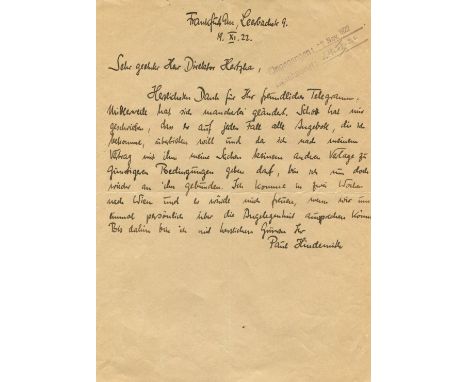 Frankfurt a/M, Leerbachstr 9.
19. XI. 22.
Eingegangen: Nov. 1922
Sehr geehrter Herr Direktor Hertzka,
Herzlichsten Dank für Ihr freundliches Telegramm.
Mittlerweile hat sich mancherlei geändert. Schott hat mir
geschrieben, dass er auf jeden Fall alle Angebote, die ich
bekomme, überbieten will und da ich nach meinem
Vertrag mit ihm meine Sachen keinem andren Verlage zu
günstigeren Bedingungen geben darf, bin ich nun doch
wieder an ihn gebunden. Ich komme in zwei Wochen
nach Wien und es würde mich freuen, wenn wir uns
einmal persönlich über die Angelegenheit aussprechen können.
Bis dahin bin ich mit herzlichem Grusse Ihr
Paul Hindemith